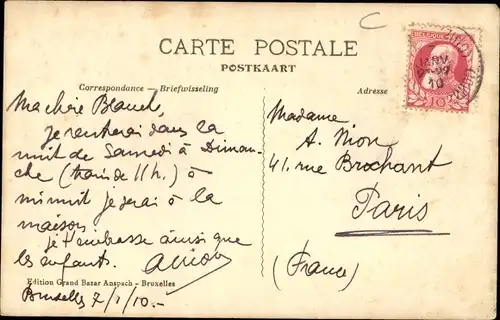 C
CARTE POSTALE
POSTKAART
Correspondance — Briefwisseling
Adresse
BELGIQUE
10
Ma chère Blanche,
je rentrerai dans la
nuit de Samedi à Diman-
che (train de 11 h.) à
minuit je serai à la
maison
je t'embrasse ainsi que
les enfants.
Edition Grand Bazar Anspach - Bruxelles
Bruxelles 7/1/10.-
Madame
A. Nion
41, rue Brochant
Paris
(France)